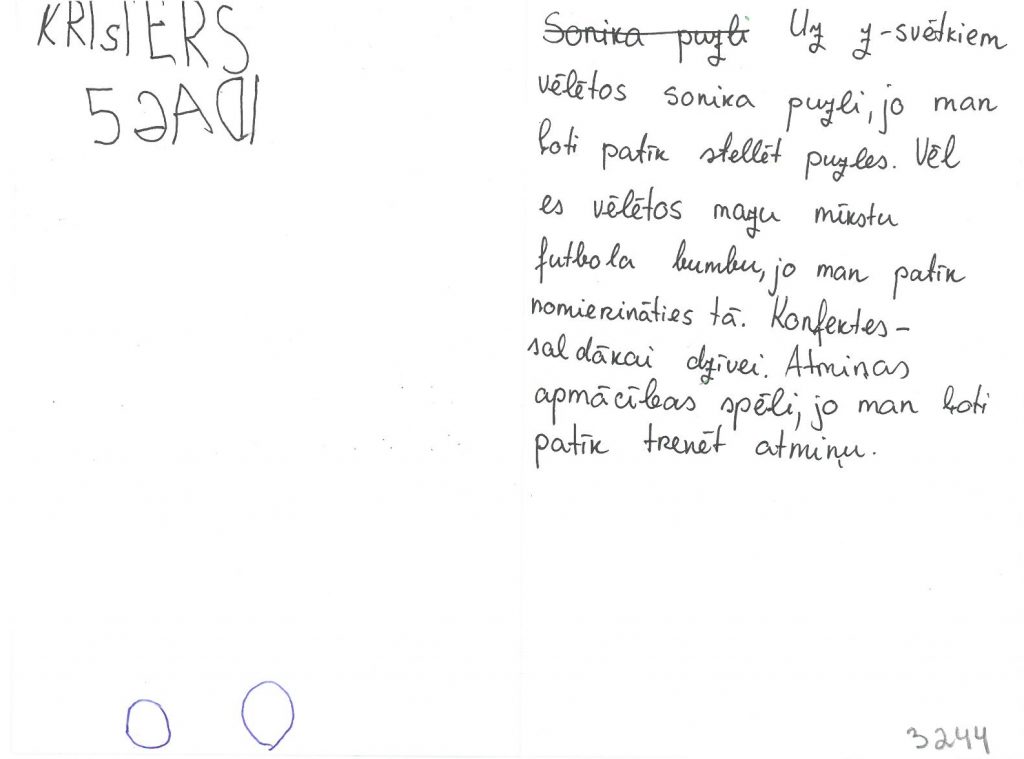 KRIsTERS
5 GADI
~~Sonika puzli~~ Uz z-svētkiem
vēlētos sonika puzli, jo man
ļoti patīk stellēt puzles. Vēl
es vēlētos mazu mīkstu
futbola bumbu, jo man patīk
nomierināties tā. Konfektes-
saldākai dzīvei. Atmiņas
apmācības spēli, jo man ļoti
patīk trenēt atmiņu.
3244